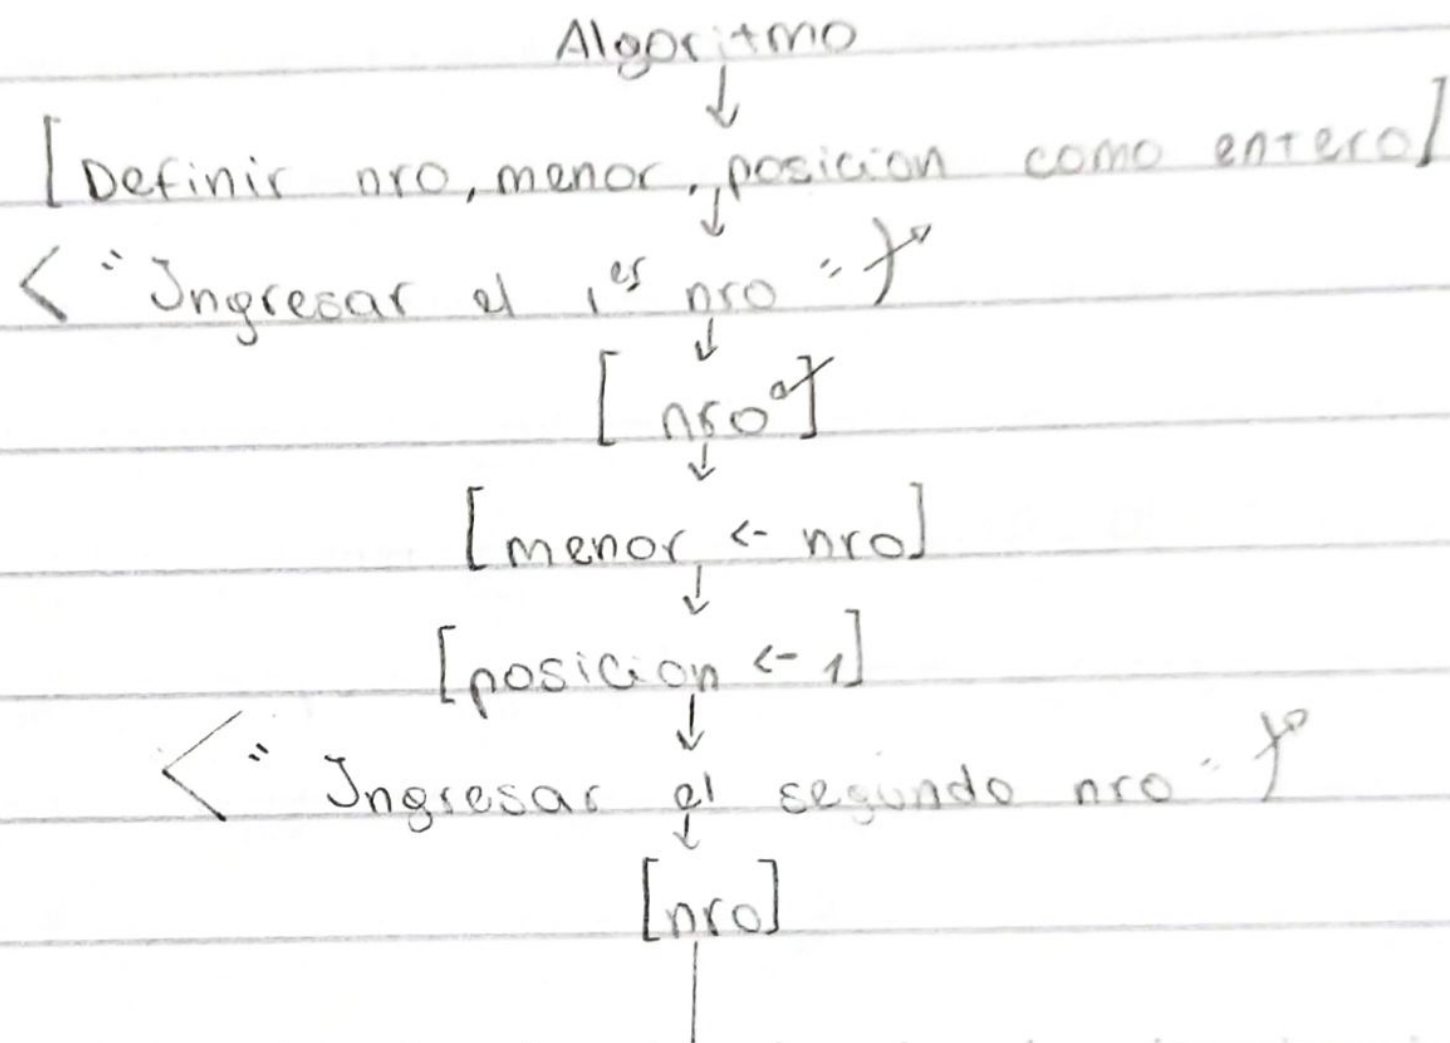 Algoritmo
[Definir nro, menor, posicion como entero]
< "Ingresar el 1er nro"
[nro]
[menor <- nro]
[posicion <- 1]
< "Ingresar el segundo nro"
[nro]